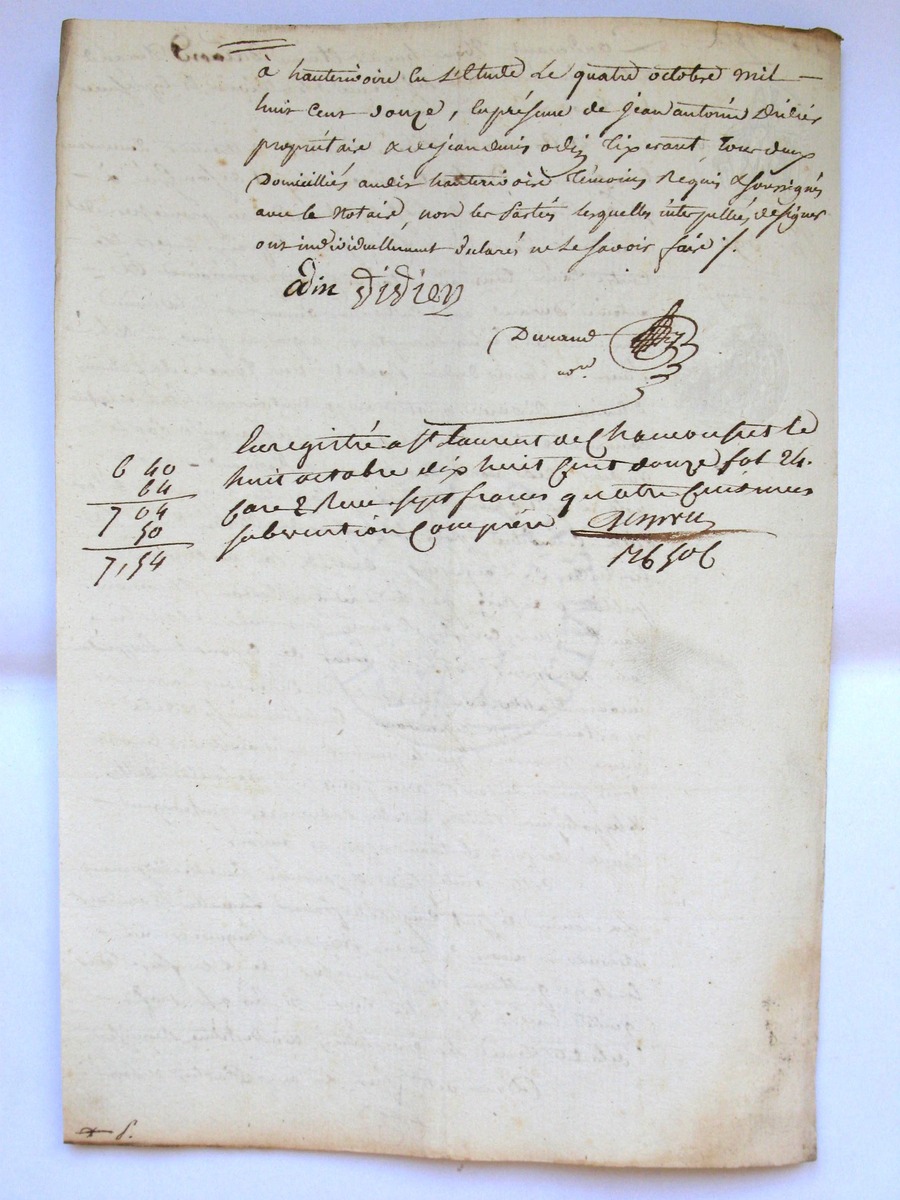 à hauterivoire En l'Etude Le quatre octobre mil
huit Cent douze, En présence de Jean antoine Didier
propriétaire & de jean denis odin tixerant, tous deux
Domicilliés audit hauterivoire témoins Requis & soussignés
avec le Notaire, non les Parties lesquelles interpellées de signer
ont individuellement déclarés ne Le savoir faire /.
odin didier
Durand
nore
Enregistré a St Laurent de Chamousset le
huit octobre dix huit Cent douze fol 24.
Case 2 Reçu sept francs quatre Centimes
subvention Comprise
6 40
64
7 04
50
7,54